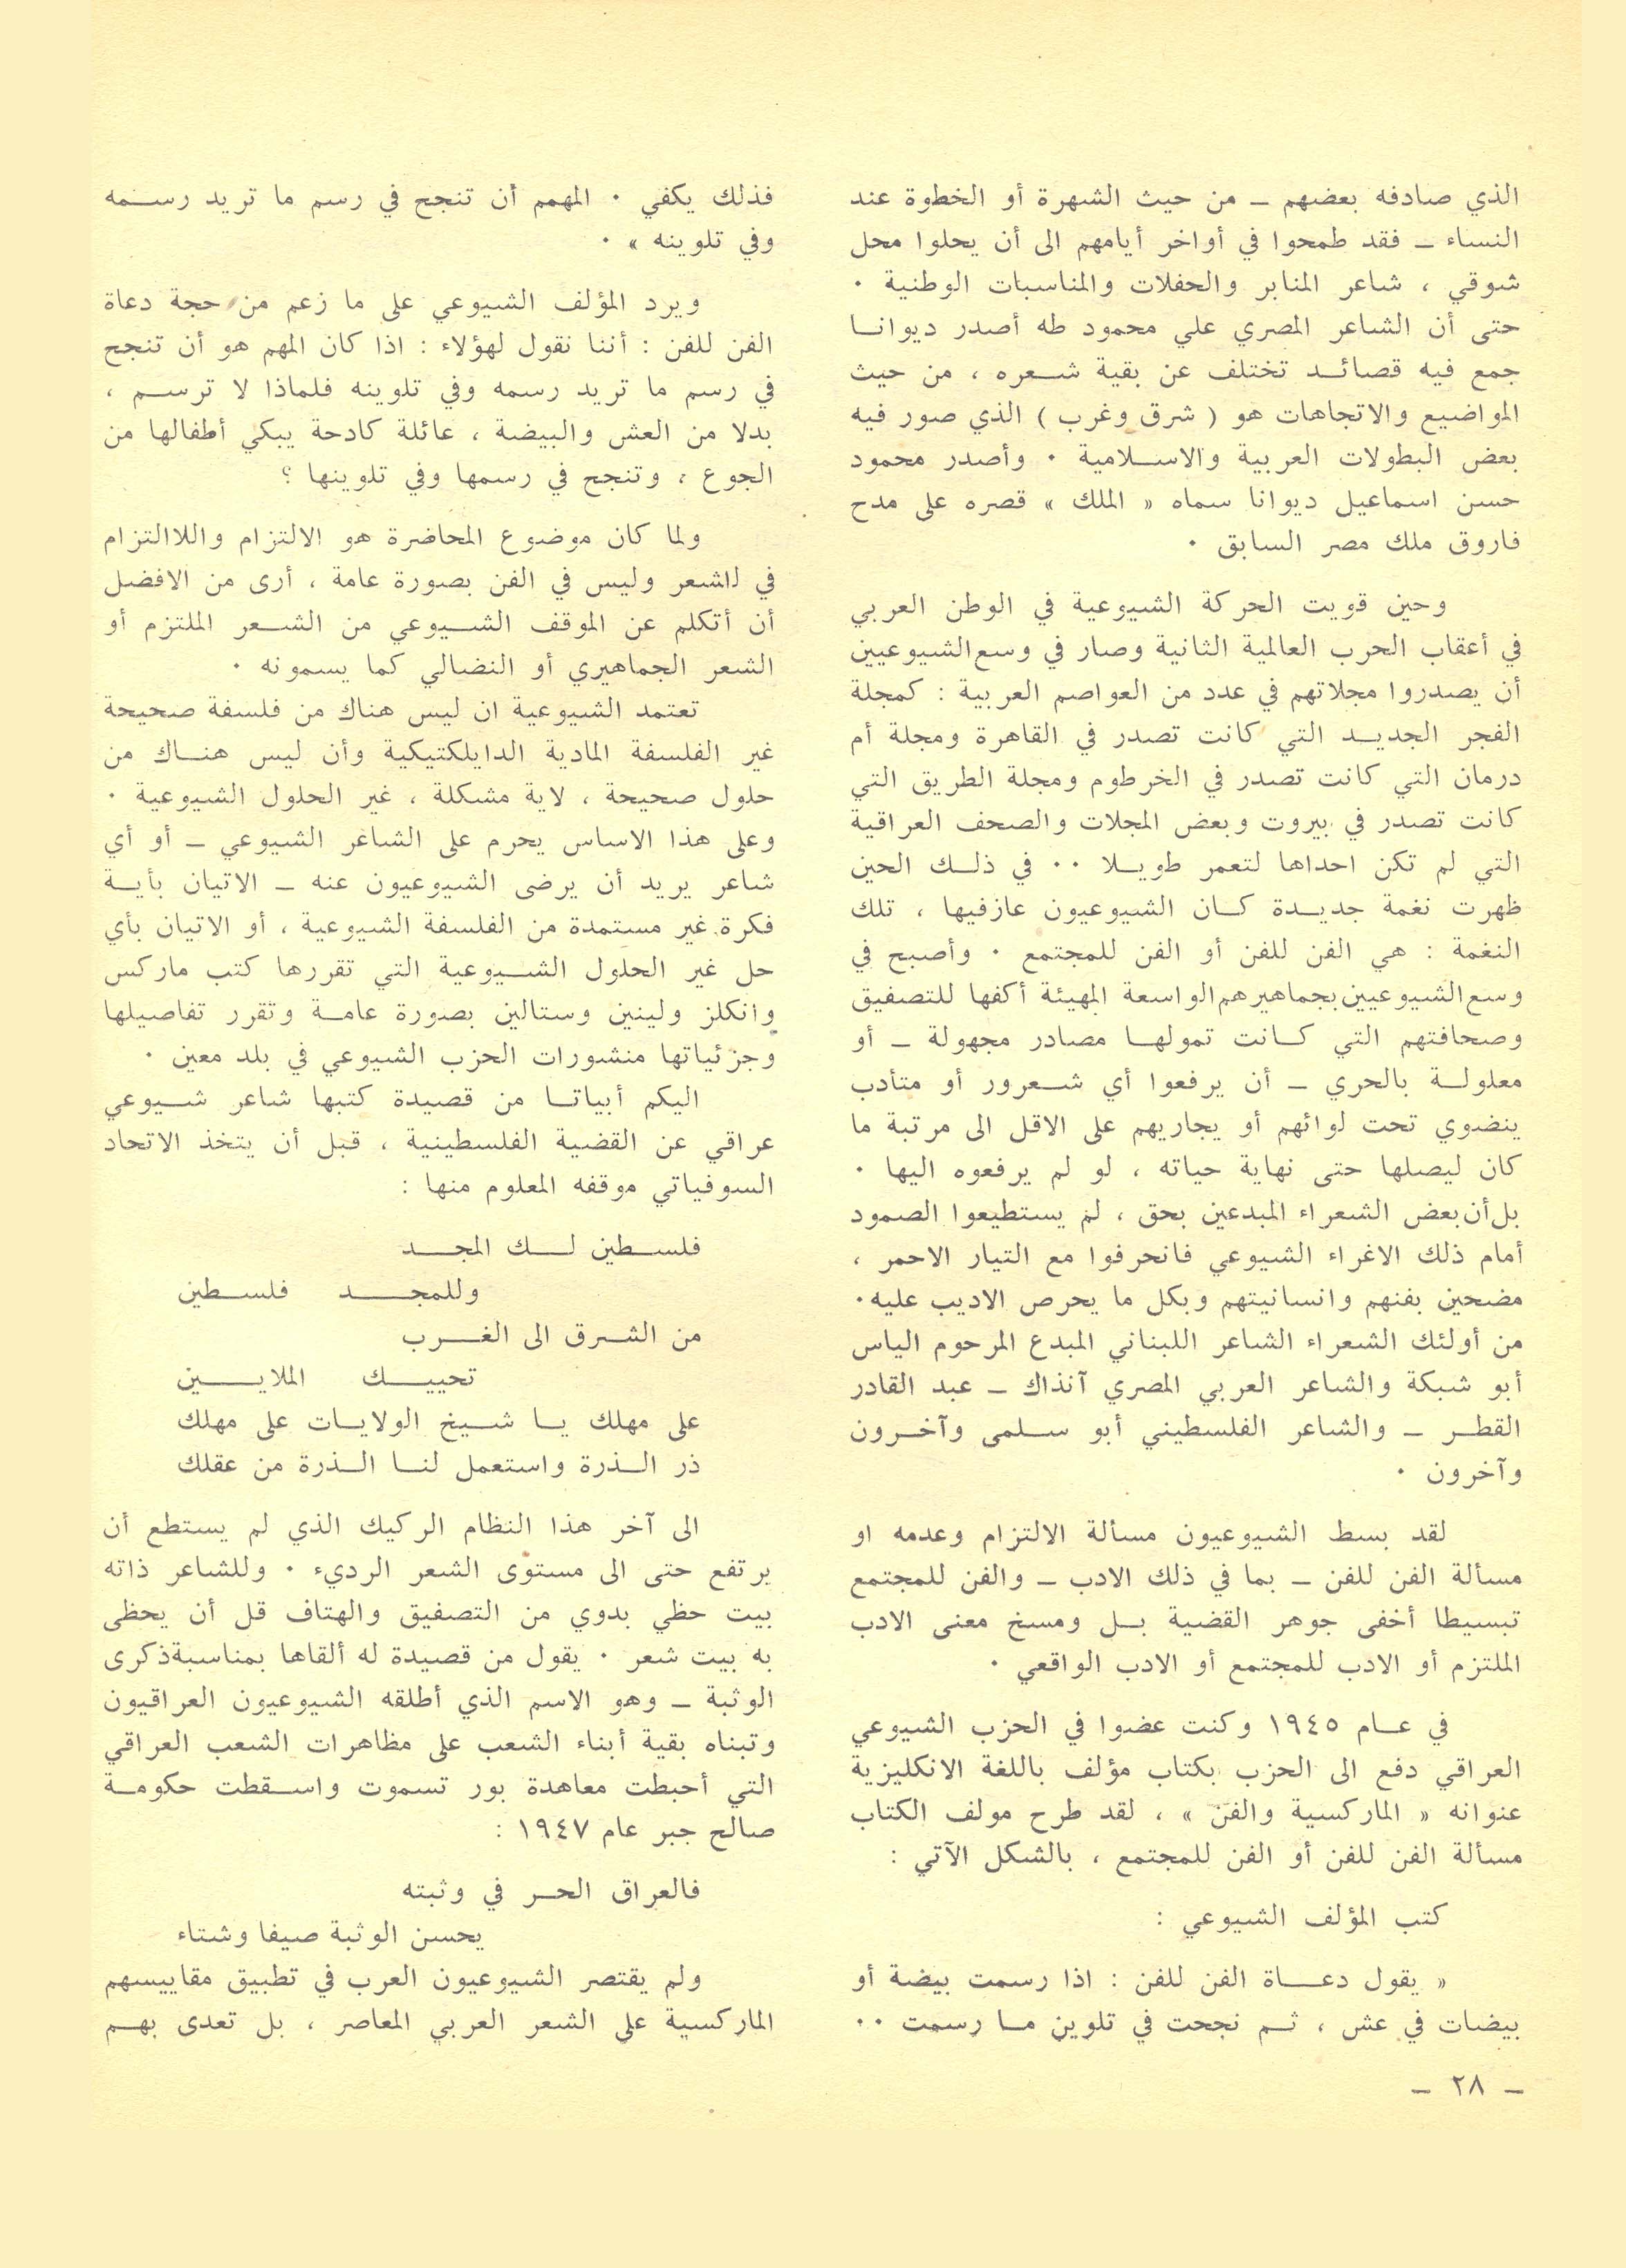 الذي صادفه بعضهم ــ من حيث الشهرة أو الخطوة عند
النساء ــ فقد طمحوا في أواخر أيامهم الى أن يحلوا محل
شوقي ، شاعر المنابر والحفلات والمناسبات الوطنية ٠
حتى أن الشاعر المصري علي محمود طه أصدر ديوانا
جمع فيه قصائد تختلف عن بقية شعره ، من حيث
المواضيع والاتجاهات هو ( شرق وغرب ) الذي صور فيه
بعض البطولات العربية والاسلامية ٠ وأصدر محمود
حسن اسماعيل ديوانا سماه « الملك » قصره على مدح
فاروق ملك مصر السابق ٠
وحين قويت الحركة الشيوعية في الوطن العربي
في أعقاب الحرب العالمية الثانية وصار في وسع الشيوعيين
أن يصدروا مجلاتهم في عدد من العواصم العربية : كمجلة
الفجر الجديد التي كانت تصدر في القاهرة ومجلة أم
درمان التي كانت تصدر في الخرطوم ومجلة الطريق التي
كانت تصدر في بيروت وبعض المجلات والصحف العراقية
التي لم تكن احداها لتعمر طويلا ٠٠ في ذلك الحين
ظهرت نغمة جديدة كان الشيوعيون عازفيها ، تلك
النغمة : هي الفن للفن أو الفن للمجتمع ٠ وأصبح في
وسع الشيوعيين بجماهيرهم الواسعة المهيئة أكفها للتصفيق
وصحافتهم التي كانت تمولها مصادر مجهولة ــ أو
معلولة بالحري ــ أن يرفعوا أي شعرور أو متأدب
ينضوي تحت لوائهم أو يجاريهم على الاقل الى مرتبة ما
كان ليصلها حتى نهاية حياته ، لو لم يرفعوه اليها ٠
بل أن بعض الشعراء المبدعين بحق ، لم يستطيعوا الصمود
أمام ذلك الاغراء الشيوعي فانحرفوا مع التيار الاحمر ،
مضحين بفنهم وانسانيتهم وبكل ما يحرص الاديب عليه٠
من أولئك الشعراء الشاعر اللبناني المبدع المرحوم الياس
أبو شبكة والشاعر العربي المصري آنذاك ــ عبد القادر
القطر ــ والشاعر الفلسطيني أبو سلمى وآخرون
وآخرون ٠
لقد بسط الشيوعيون مسألة الالتزام وعدمه او
مسألة الفن للفن ــ بما في ذلك الادب ــ والفن للمجتمع
تبسيطا أخفى جوهر القضية بل ومسخ معنى الادب
الملتزم أو الادب للمجتمع أو الادب الواقعي ٠
في عام ١٩٤٥ وكنت عضوا في الحزب الشيوعي
العراقي دفع الى الحزب بكتاب مؤلف باللغة الانكليزية
عنوانه « الماركسية والفن » ، لقد طرح مولف الكتاب
مسألة الفن للفن أو الفن للمجتمع ، بالشكل الآتي :
كتب المؤلف الشيوعي :
« يقول دعاة الفن للفن : اذا رسمت بيضة أو
بيضات في عش ، ثم نجحت في تلوين ما رسمت ٠٠
ــ ٢٨ ــ
فذلك يكفي ٠ المهمم أن تنجح في رسم ما تريد رسمه
وفي تلوينه » ٠
ويرد المؤلف الشيوعي على ما زعم من حجة دعاة
الفن للفن : أننا نقول لهؤلاء : اذا كان المهم هو أن تنجح
في رسم ما تريد رسمه وفي تلوينه فلماذا لا ترسم ،
بدلا من العش والبيضة ، عائلة كادحة يبكي أطفالها من
الجوع ، وتنجح في رسمها وفي تلوينها ؟
ولما كان موضوع المحاضرة هو الالتزام واللاالتزام
في لاشعر وليس في الفن بصورة عامة ، أرى من الافضل
أن أتكلم عن الموقف الشيوعي من الشعر الملتزم أو
الشعر الجماهيري أو النضالي كما يسمونه ٠
تعتمد الشيوعية ان ليس هناك من فلسفة صحيحة
غير الفلسفة المادية الدايلكتيكية وأن ليس هناك من
حلول صحيحة ، لاية مشكلة ، غير الحلول الشيوعية ٠
وعلى هذا الاساس يحرم على الشاعر الشيوعي ــ أو أي
شاعر يريد أن يرضى الشيوعيون عنه ــ الاتيان بأية
فكرة غير مستمدة من الفلسفة الشيوعية ، أو الاتيان بأي
حل غير الحلول الشيوعية التي تقررها كتب ماركس
وانكلز ولينين وستالين بصورة عامة وتقرر تفاصيلها
وجزئياتها منشورات الحزب الشيوعي في بلد معين ٠
اليكم أبياتا من قصيدة كتبها شاعر شيوعي
عراقي عن القضية الفلسطينية ، قبل أن يتخذ الاتحاد
السوفياتي موقفه المعلوم منها :
فلسطين لك المجد
وللمجد فلسطين
من الشرق الى الغرب
تحييك الملايين
على مهلك يا شيخ الولايات على مهلك
ذر الذرة واستعمل لنا الذرة من عقلك
الى آخر هذا النظام الركيك الذي لم يستطع أن
يرتفع حتى الى مستوى الشعر الرديء ٠ وللشاعر ذاته
بيت حظي بدوي من التصفيق والهتاف قل أن يحظى
به بيت شعر ٠ يقول من قصيدة له ألقاها بمناسبة ذكرى
الوثبة ــ وهو الاسم الذي أطلقه الشيوعيون العراقيون
وتبناه بقية أبناء الشعب على مظاهرات الشعب العراقي
التي أحبطت معاهدة بور تسموت واسقطت حكومة
صالح جبر عام ١٩٤٧ :
فالعراق الحر في وثبته
يحسن الوثبة صيفا وشتاء
ولم يقتصر الشيوعيون العرب في تطبيق مقاييسهم
الماركسية على الشعر العربي المعاصر ، بل تعدى بهم